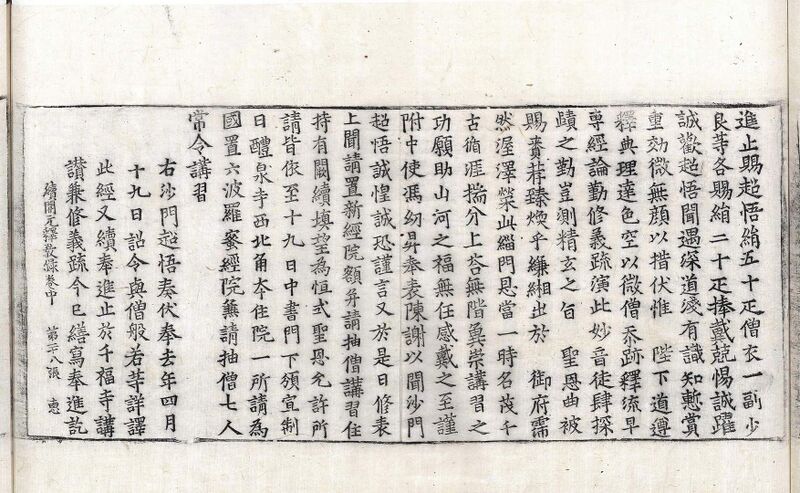 進止賜超悟絹五十疋僧衣一副少
良等各賜絹二十疋捧戴兢惕誠躍
誠歡超悟聞遇深道淺有識知慙賞
重効微無顔以措伏惟 陛下道遵
釋典理達色空以微僧忝跡釋流早
專經論勤修義疏演此妙音徒肆採
賾之勤豈測精玄之旨 聖恩曲被
賜賚荐臻煥乎縑緗出於 御府霈
然渥澤榮此緇門恩當一時名茂千
古循涯揣分上荅無階冀崇講習之
功願助山河之福無任感戴之至謹
附中使馮昇奉表陳謝以聞沙門
超悟誠惶誠恐謹言又於是日修表
上聞請置新經院額幷請抽僧講習住
持有闕續塡望爲恒式聖恩允許所
請皆依至十九日中書門下頒宣制
日醴泉寺西北角本住院一所請爲
國置六波羅蜜經院兼請抽僧七人
常令講習
右沙門超悟奏伏奉去年四月
十九日詔令與僧般若等詳譯
此經又續奉進止於千福寺講
讃兼修義疏今已繕寫奉進訖
續開元釋敎錄卷中 第廿八張 惠